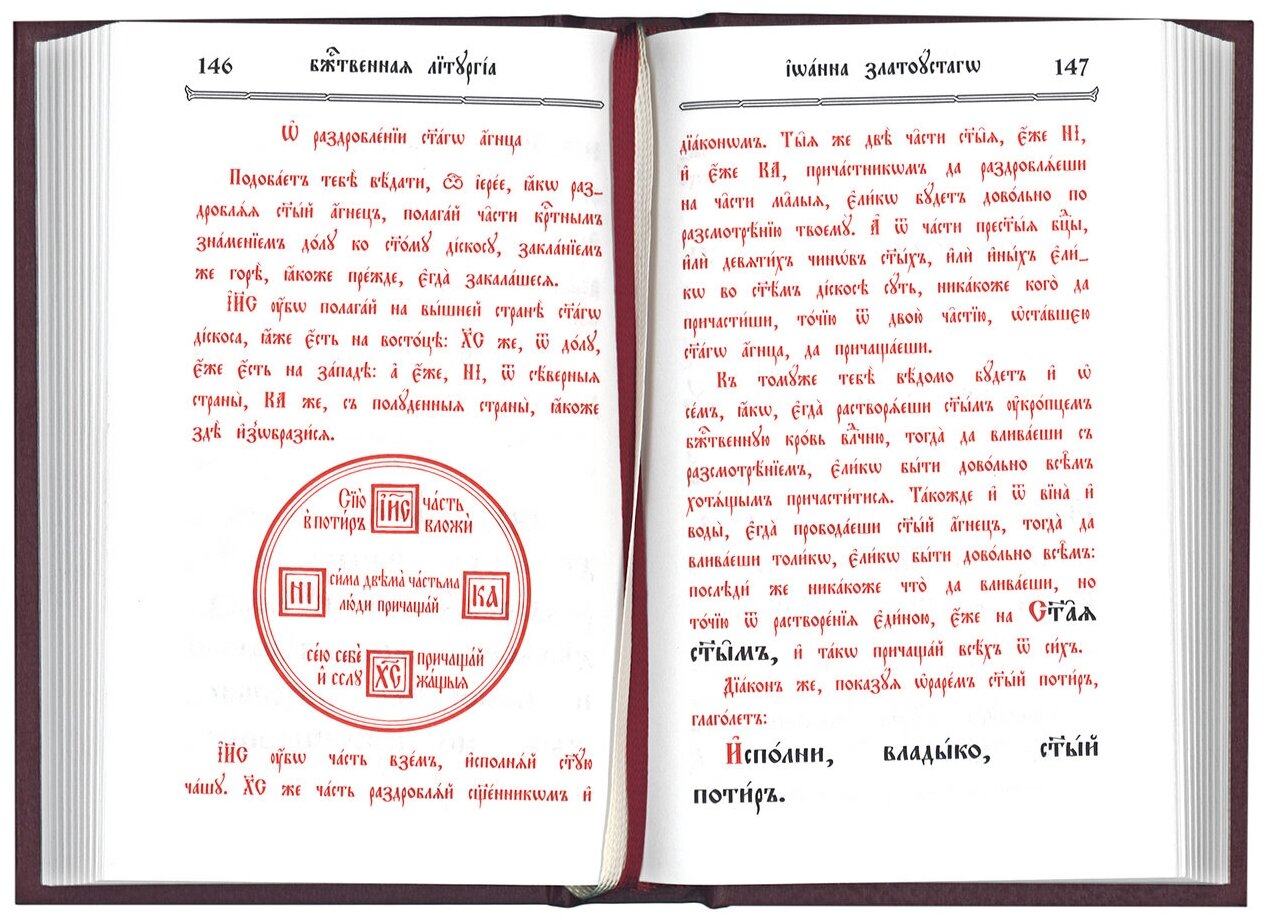 146 бж҃твенная літꙋргі́а
Ѡ҆ раздробле́нїи ст҃а́гѡ а҆́гнца
Подоба́етъ тебѣ̀ вѣ́дати, ѽ і҆ере́е, ꙗ҆́кѡ раз_
дробл́ѧѧ ст҃ы́й а҆́гнецъ, полага́й ча̑сти крⷭ҇тнымъ
зна́менїемъ до́лꙋ ко ст҃о́мꙋ ді́скосꙋ, закла́нїемъ
же горѣ̀, ꙗ҆́коже пре́жде, є҆гда̀ закала́шесѧ.
І҆И҃С ᲂу҆́бѡ полага́й на вы́шней странѣ̀ ст҃а́гѡ
ді́скоса, ꙗ҆́же є҆́сть на восто́цѣ: Х҃С же, ѿ до́лꙋ,
є҆́же є҆́сть на за́падѣ: а҆ є҆́же, НІ, ѿ сѣ́верныѧ
страны̀, КА же, съ полꙋ́денныѧ страны̀, ꙗ҆́коже
здѣ̀ и҆з̾ѡбрази́сѧ.
Сїю̀ І҆И҃С ча́сть
в̾ поти́ръ вложѝ
НІ си́ма двѣма̀ частьма̀ КА
лю́ди причаща́й
се́ю себѐ Х҃С причаща́й
и҆ сслꙋ жа́щыѧ
І҆И҃С ᲂу҆́бѡ ча́сть взе́мъ, и҆сполнѧ́й ст҃ꙋ́ю
ча́шꙋ. Х҃С же ча́сть раздроблѧ́й сщ҃е́нникѡмъ и҆
і҆ѡа́нна златоꙋ́стагѡ 147
дїа́конѡмъ. Ты̑ѧ же двѣ̀ ча̑сти ст҃ы̑ѧ, є҆́же НІ,
и҆ є҆́же КА, прича́стникѡмъ да раздроблѧ́еши
на ча̑сти ма̑лыѧ, є҆ли́кѡ бꙋ́детъ дово́льно по
разсмотрѣ́нїю твоемꙋ̀. А҆ ѿ ча́сти прест҃ы́ѧ бц҃ы,
и҆лѝ девѧти́хъ чинѡ́въ ст҃ы́хъ, и҆лѝ и҆ны́хъ є҆ли́_
кѡ во ст҃ѣ́мъ ді́скосѣ сꙋ́ть, ника́коже кого̀ да
причасти́ши, то́чїю ѿ двою̀ ча̑стїю, ѡ҆ста́вшею
ст҃а́гѡ а҆́гнца, да причаща́еши.
Къ томꙋ́же тебѣ̀ вѣ́домо бꙋ́детъ и҆ ѡ҆
се́мъ, ꙗ҆́кѡ, є҆гда̀ растворѧ́еши ст҃ы́мъ ᲂу҆кро́пцемъ
бж҃твенную кро́вь влⷣчню, тогда̀ да влива́еши съ
разсмотрѣ́нїемъ, є҆ли́кѡ бы́ти дово́льно всѣ̑мъ
хотѧ́щымъ причасти́тисѧ. Та́кожде и҆ ѿ вїна̀ и҆
воды̀, є҆гда̀ пробода́еши ст҃ы́й а҆́гнецъ, тогда̀ да
влива́еши толи́кѡ, є҆ли́кѡ бы́ти дово́льно всѣ̑мъ:
послѣди́ же ника́коже что̀ да влива́еши, но
то́чїю ѿ растворе́нїѧ є҆ди́ною, є҆́же на Ст҃а̑ѧ
ст҃ы̑мъ, и҆ та́кѡ причаща́й всѣ́хъ ѿ си́хъ.
Дїа́конъ же, показꙋ́ѧ ѡ҆раре́мъ ст҃ы́й поти́ръ,
глаго́летъ:
И҆спо́лни, влады́ко, ст҃ы́й
поти́ръ.